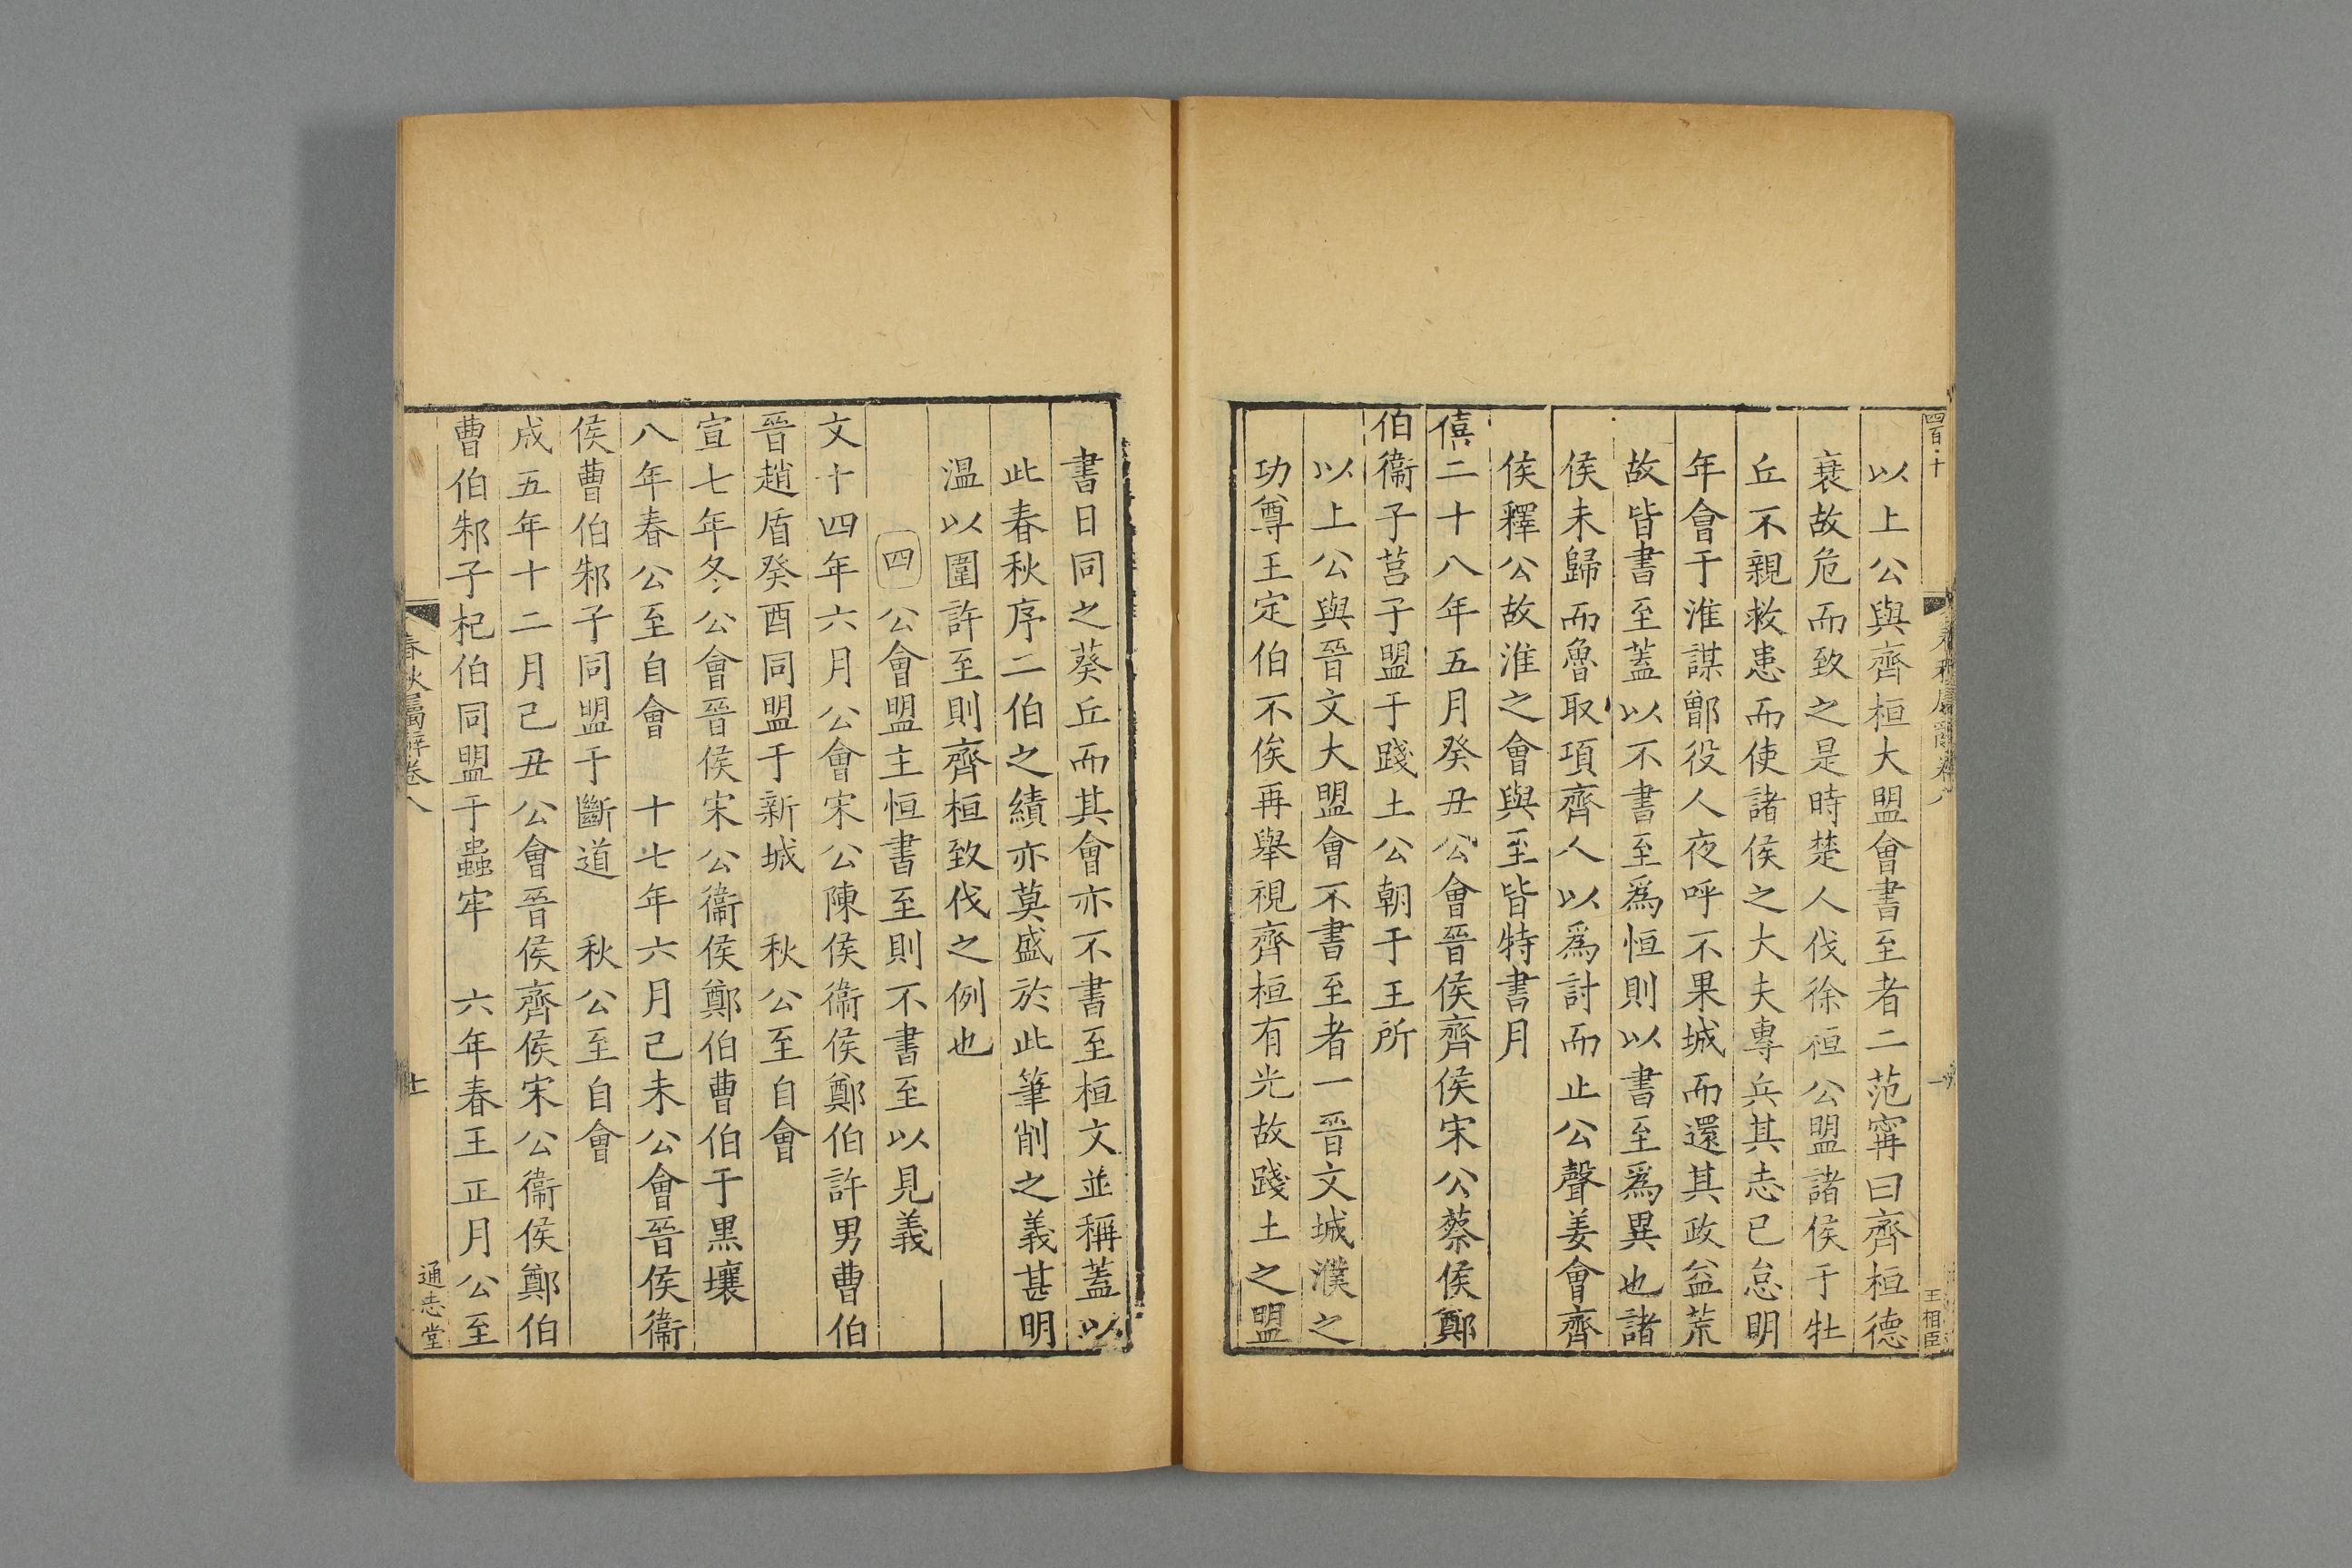 四百·十
春秋屬辭卷八
王相臣
以上公與齊桓大盟會書至者二范甯曰齊桓德
衰故危而致之是時楚人伐徐桓公盟諸侯于牡
丘不親救患而使諸侯之大夫專兵其志已怠明
年會于淮謀鄫役人夜呼不果城而還其政益荒
故皆書至蓋以不書至爲恒則以書至爲異也諸
侯未歸而魯取項齊人以爲討而止公聲姜會齊
侯釋公故淮之會與至皆特書月
僖二十八年五月癸丑公會晉侯齊侯宋公蔡侯鄭
伯衞子莒子盟于踐土公朝于王所
以上公與晉文大盟會不書至者一晉文城濮之
功尊王定伯不俟再舉視齊桓有光故踐土之盟
書日同之葵丘而其會亦不書至桓文並稱蓋以
此春秋序二伯之績亦莫盛於此筆削之義甚明
溫以圍許至則齊桓致伐之例也
四公會盟主恒書至則不書至以見義
文十四年六月公會宋公陳侯衞侯鄭伯許男曹伯
晉趙盾癸酉同盟于新城 秋公至自會
宣七年冬公會晉侯宋公衞侯鄭伯曹伯于黑壤
八年春公至自會 十七年六月己未公會晉侯衞
侯曹伯邾子同盟于斷道 秋公至自會
成五年十二月己丑公會晉侯齊侯宋公衞侯鄭伯
曹伯邾子杞伯同盟于蟲牢 六年春王正月公至
春秋屬辭卷八
十一
通志堂